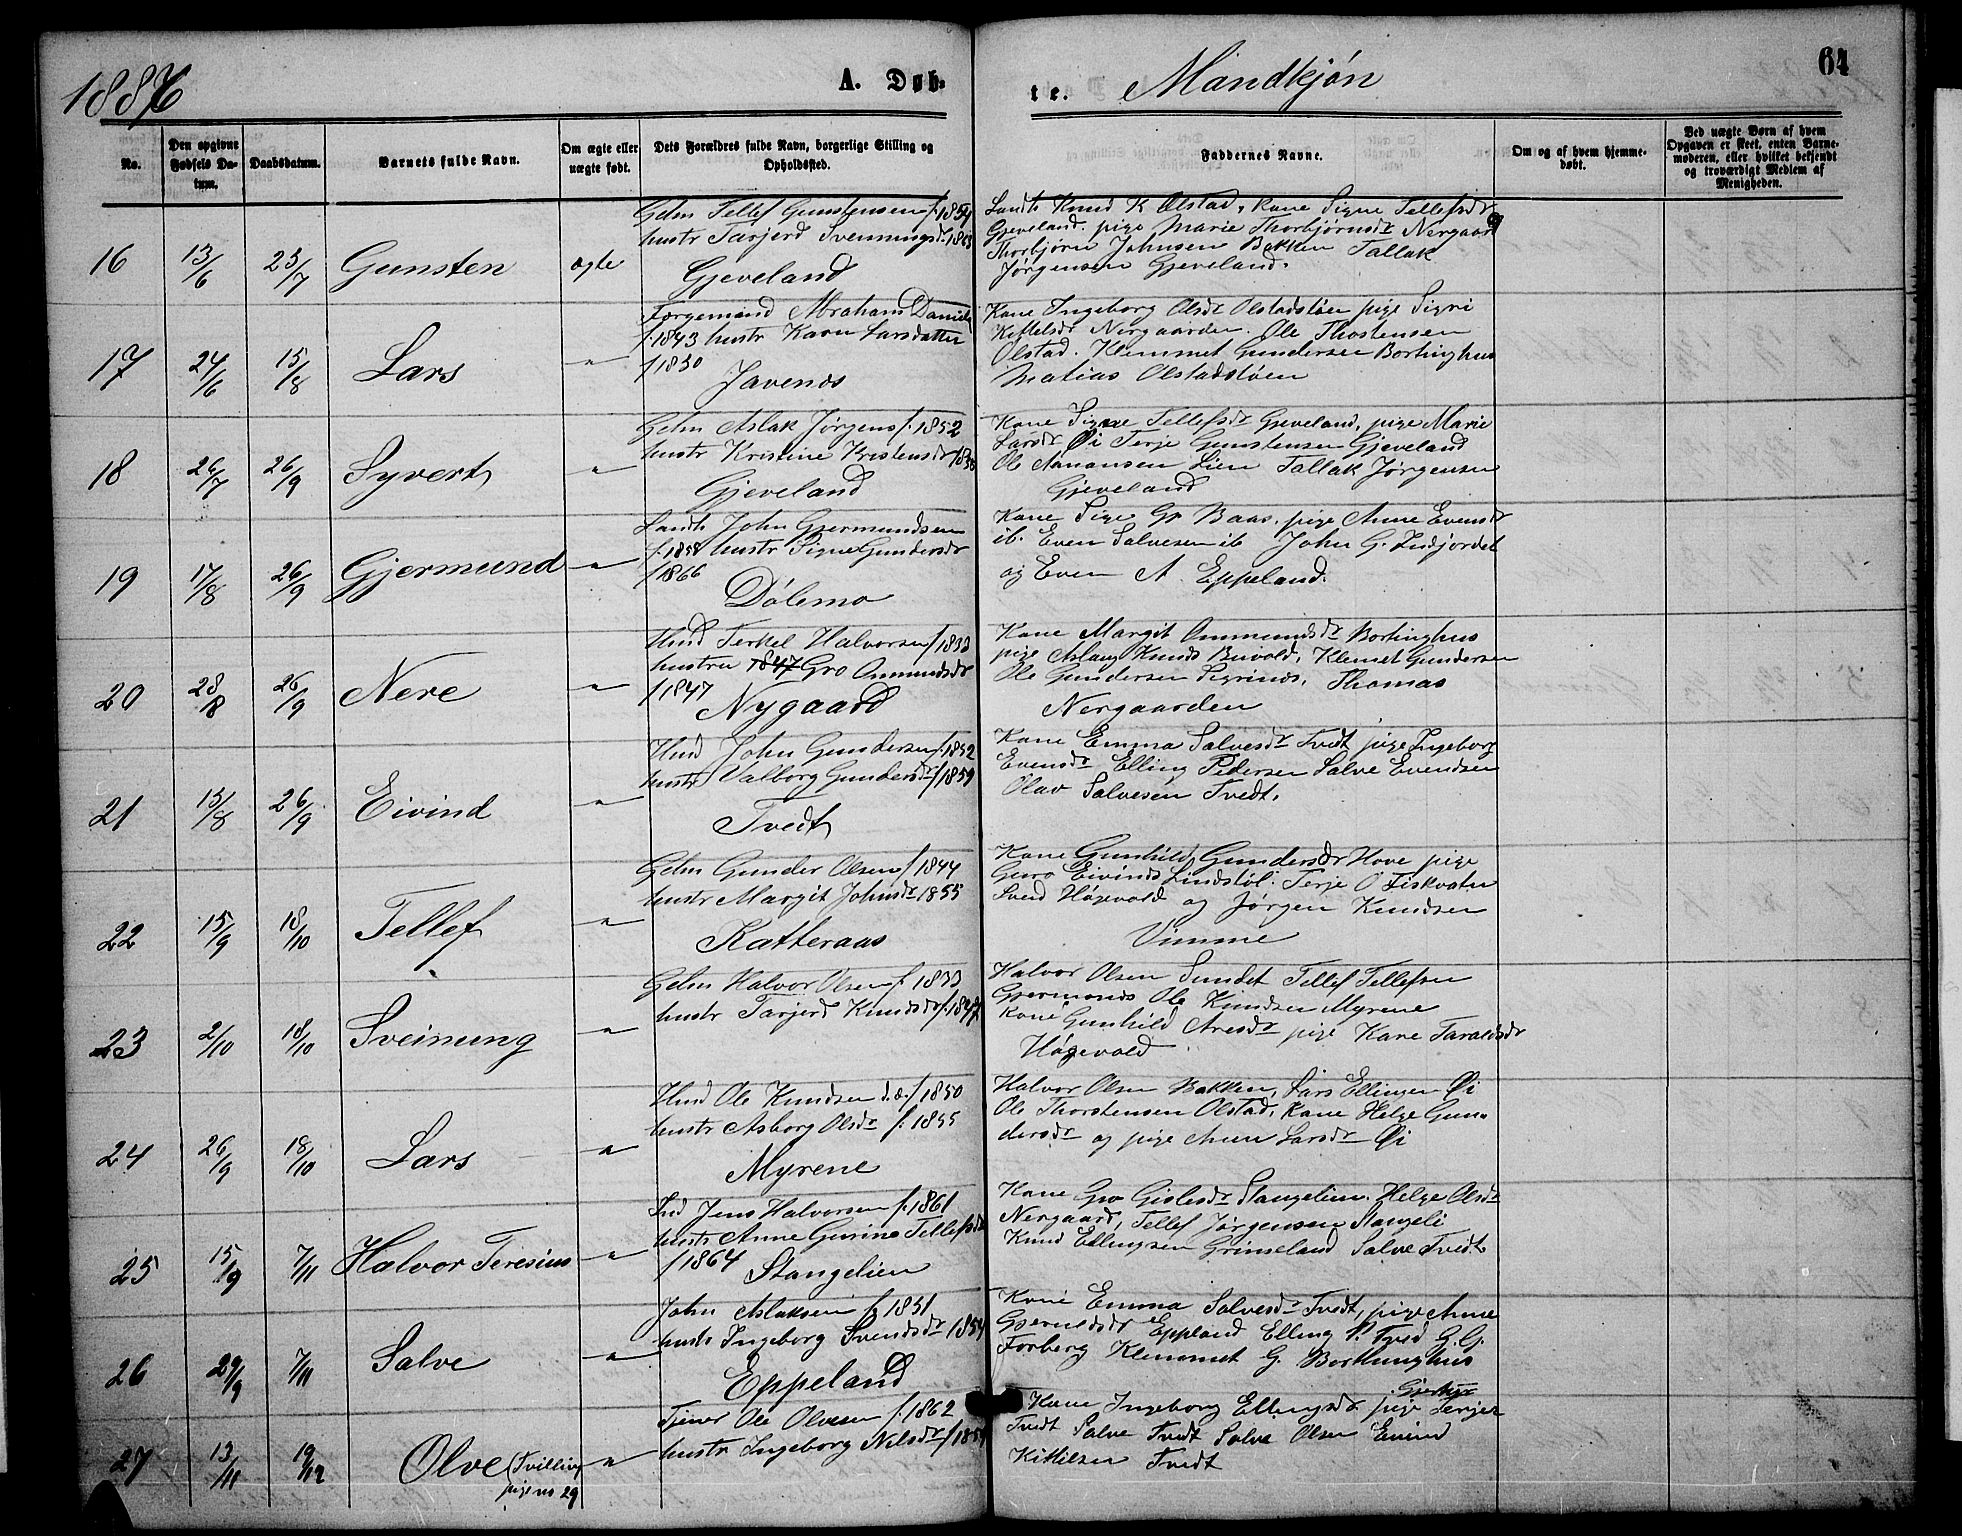 1886
A. Døb-
te.
Mandkjøn
64
No.
Den opgivne Fødsels Da-tum.
Daabsdatum.
Barnets fulde Navn.
Om ægte eller uægte født.
Dets Forældres fulde Navn, borgerlige Stilling og Opholdssted.
Faddernes Navne.
Om og af hvem hjemme-døbt.
Ved uægte Børn af hvem Opgaven er skeet, enten Barne-moderen, eller hvilket bekjendt og troværdigt Medlem af Menigheden.
16 13/6 25/7 Gunsten ægte
Gdm Tellef Gunstensen f. 1854
hustr Tarjerd Svennungsdr 1863
Gjeveland
Landh Knud K Ølstad, Kone Signe Tellefsdr
Gjeveland. pige Marie Thorbjørnsdr Nergaard
Thorbjørn Johnsen Bakken Tallak
Jørgensen Gjeveland.
17 24/6 15/8 Lars "
Forgemand Abraham Daniels
f. 1843 hustr Karen Larsdatter
f 1850
Javenæs
Kone Ingeborg Olsdr Olstadstøen pige Sigri
Kittelsdr Nergaarden. Ole Thostensen
Olstad. Klemmet Gundersen Bortinghus
Matias Olstadstøen
18 26/7 26/9 Syvert "
Gdm Aslak Jørgens f. 1852
hustr Kristine Kristensdr
Gjeveland
Kone Signe Tellefsdr Gjeveland, pige Marie
Larsdr Øi Terje Gunstensen Gjeveland
Ole Aanansen Lien Tallak Jørgensen
Gjeveland
19 17/8 26/9 Gjermund "
Landh John Gjermundsen
f. 1858 hustr Signe Gundersdr
f 1866
Dølemo
Kone Sige Gr Baas. pige Anne Evensdr
ib. Even Salvesen ib John G. Indjordet
og Even A. Eppeland.
20 28/8 26/9 Nere "
Hmd Terkel Halvorsen f 1833
hustru 1847 Gro Ommundsdr
f 1847
Nygaard
Kone Margit Ommundsdr Bortinghus
pige Aslaug Knuds Beivold, Klemet Gundersen
Ole Gundersen Sigrinæs, Thomas
Nergaarden
21 15/8 26/9 Eivind "
Hmd John Gundersen f. 1852
hustr Valborg Gundersdr f 1859
Tvedt
Kone Emma Salvesdr Tvedt pige Ingeborg
Evensdr Elling Pedersen Salve Evendsen
Olav Salvesen Tvedt.
22 15/9 18/10 Tellef "
Gdm Gunder Olsen f 1844
hustr Margit Johnsdr 1855
Katteraas
Kone Gunhild Gundersdr Hove pige
Guro Eivinds Lindstøl. Terje O Fiskvatn
Svend Høgevold og Jørgen Knudsen
Vimme
23 2/10 18/10 Sveinung "
Gdm Halvor Olsen f. 1833
hustr Tarjerd Knudsdr f. 1847
Halvor Olsen Sundet Tellef Tellefsen
Gjermonds Ole Knudsen Myrene
Kone Gunhild Aresdr pige Kare Taraldsdr
Høgevold
24 26/9 18/10 Lars "
Hmd Ole Knudsen d.æ. f 1850
hustr Asborg Olsdr f. 1855
Myrene
Halvor Olsen Bakken, Lars Ellingen Øi
Ole Thorstensen Olstad, Kone Helge Gun-
dersdr og pige Anne Larsdr Øi
25 15/9 7/11 Halvor Teresius "
Ind Jens Halvorsen f. 1861
hustr Anne Gurine Tellefsdr
f 1864
Stangelien
Kone Gro Gislesdr Stangelien. Helge Olsdr
Nergaard, Tellef Jørgensen Stangeli
Knud Ellingsen Grimseland Salve Tvedt
26 29/9 7/11 Salve "
John Aslaksen f 1851
hustr Ingeborg Svendsdr 1854
Eppeland
Kone Emma Salvesdr Tvedt, pige Anne
Gjeruldsdr Eppland Elling P. Tved G. G.
Forberg Klemmet G. Bortinghus
27 13/11 19/12 Olve (Tvilling
pige no 29 "
Tjener Ole Olvesen f. 1862
hustr Ingeborg Nilsdr f 1859
Kone Ingeborg Ellingsdr pige Terjer
Tvedt Salve Tvedt Salve Olsen Eivind
Kittilsen Tvedt